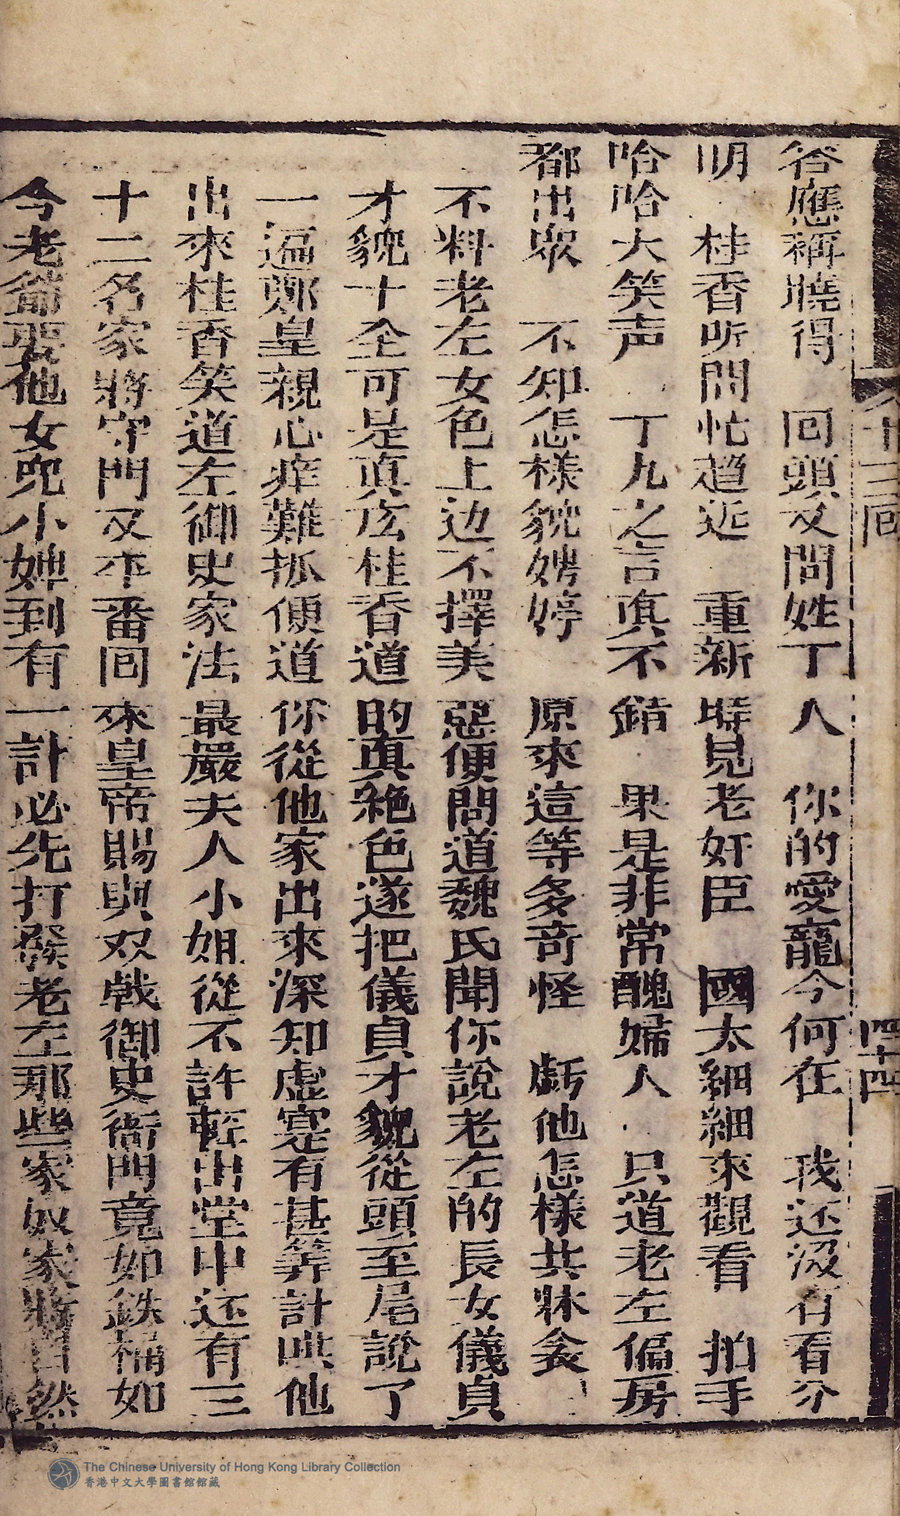 十三囘
四十四
答應稱曉得　回頭又問姓丁人　你的愛寵今何在　我还没有看分
明　桂香听問忙趋近　重新時見老奸臣　國太細細來觀看　拍手
哈哈大笑声　丁九之言真不錯　果是非常醜婦人　只道老左偏房
都出眾　不知怎樣貌娉婷　原來這等多奇怪　虧他怎樣共牀衾
不料老左女色上边不擇美惡便問道魏氏聞你說老左的長女儀貞
才貌十全可是真庅桂香道的真絕色遂把儀貞才貌從頭至尾說了
一遍鄭皇親心痒難抓便道你從他家出來深知虚寔有甚筭計哄他
出來桂香笑道左御史家法最嚴夫人小姐從不許輕出堂中还有三
十二名家將守門又本番囘來皇帝賜與双戟御史衙門竟如鉄桶如
今老爺要他女兜小婢到有一計必先打發老左那些家奴家將自然
The Chinese University of Hong Kong Library Collection
香港中文大學圖書館館藏